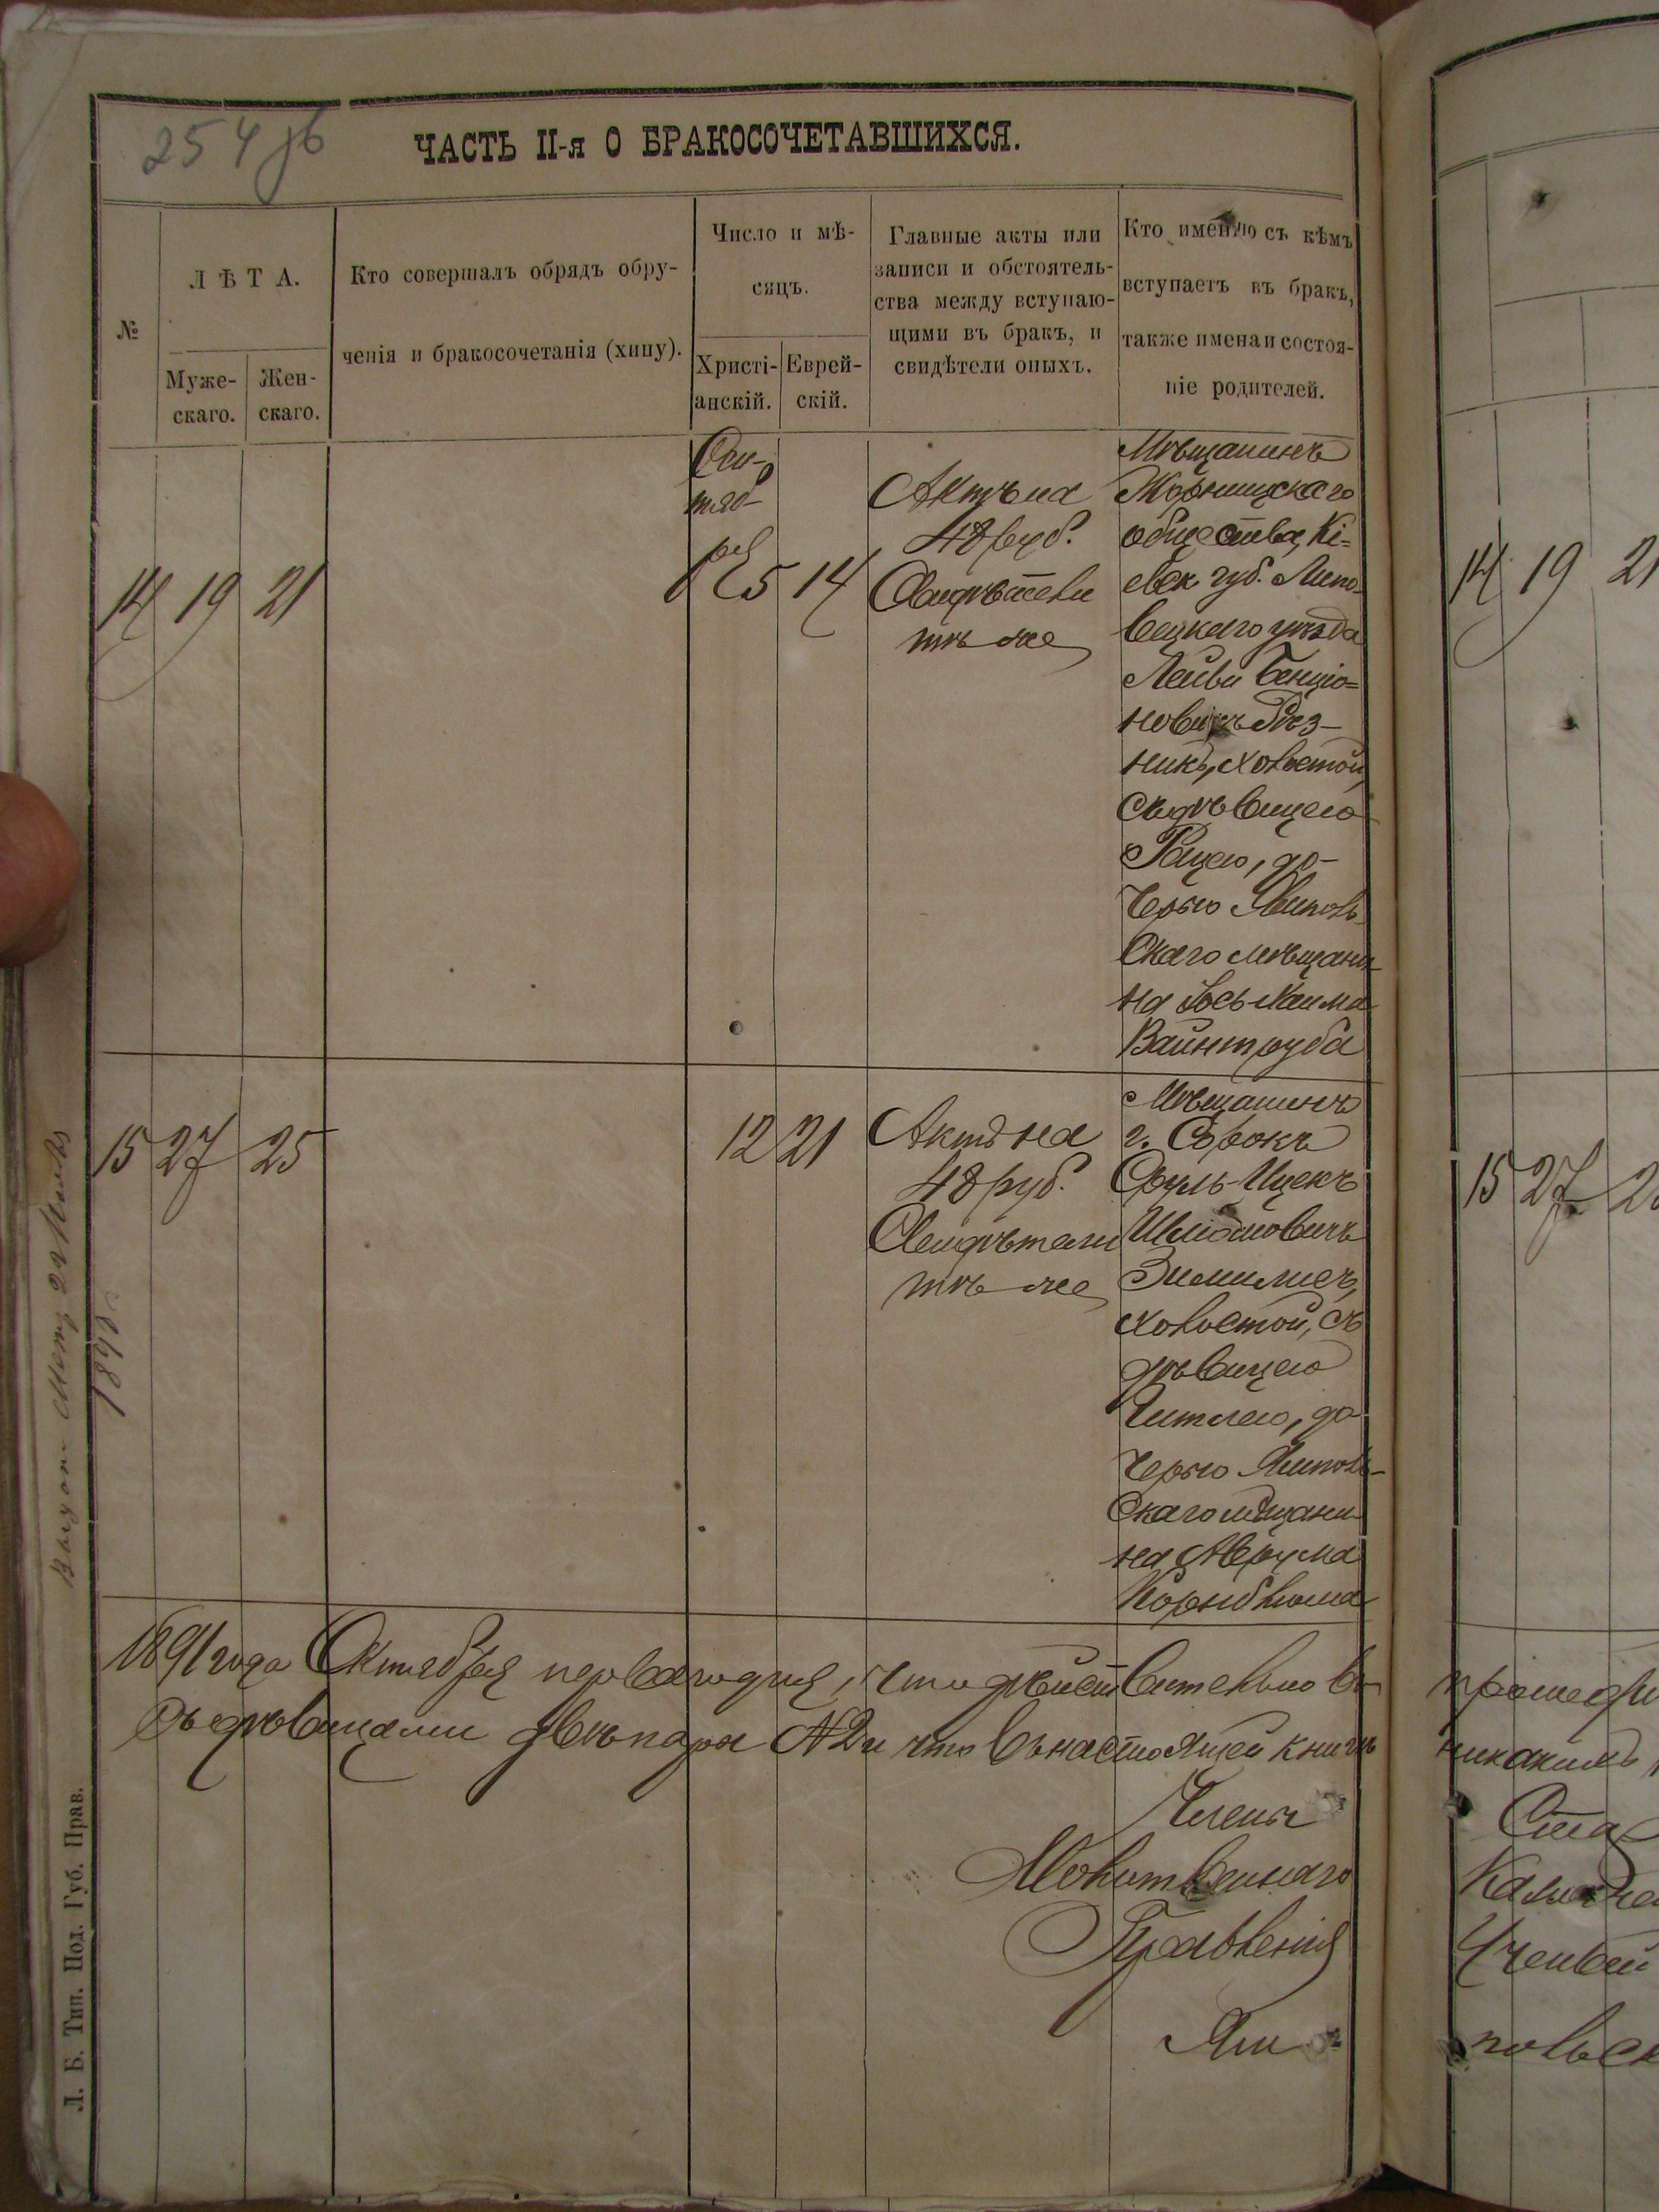 254 об
ЧАСТЬ II-я О БРАКОСОЧЕТАВШИХСЯ.
№
ЛѢТА.
Муже-
скаго.
Жен-
скаго.
Кто совершалъ обрядъ обру-
ченія и бракосочетанія (хипу).
Число и мѣ-
сяцъ.
Христі-
анскій.
Еврей-
скій.
Главные акты или
записи и обстоятель-
ства между вступаю-
щими въ бракъ, и
свидѣтели оныхъ.
Кто именно съ кѣмъ
вступаетъ въ бракъ,
также имена и состоя-
ніе родителей.
14 19 21
Сен-
тяб-
ря 5 14
Актъ на
48 руб.
Свидѣтели
тѣ же
Мѣщанинъ
Жорнищскаго
общества, Кі-
евск губ. Липо-
вецкаго уѣзда
Лейви Бенціо-
новичъ Рѣз-
никъ, холостой
съ дѣвицею
Рацею, до-
черью Ямполь-
скаго мѣщани-
на Іось-Хаима
Вайнтруба
15 27 25
12 21
Актъ на
48 руб.
Свидѣтели
тѣ же
Мѣщанинъ
г. Сорокъ
Сруль-Ицекъ
Шліомовичъ
холостой, съ
дѣвицею
Читлею, до-
черью Ямполь-
скаго мѣщани-
на Аврума
1891 года Октября перваго дня, что дѣйствительно въ
съ дѣвицами двѣ пары № 2 и что въ настоящей книгѣ
Члены
Молитвеннаго
Правленія
Ям
Л. Б. Тип. Под. Губ. Прав.
14 19 21
15 27 2
никакихъ
Ста
Ученый
польск